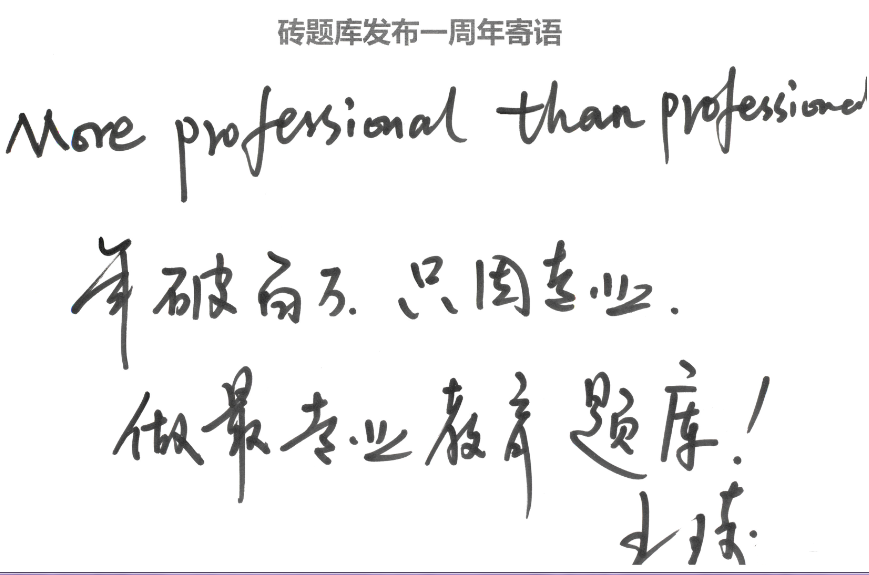 砖题库发布一周年寄语
More professional than professional
年破百万.只因专业.
做最专业教育题库!
王